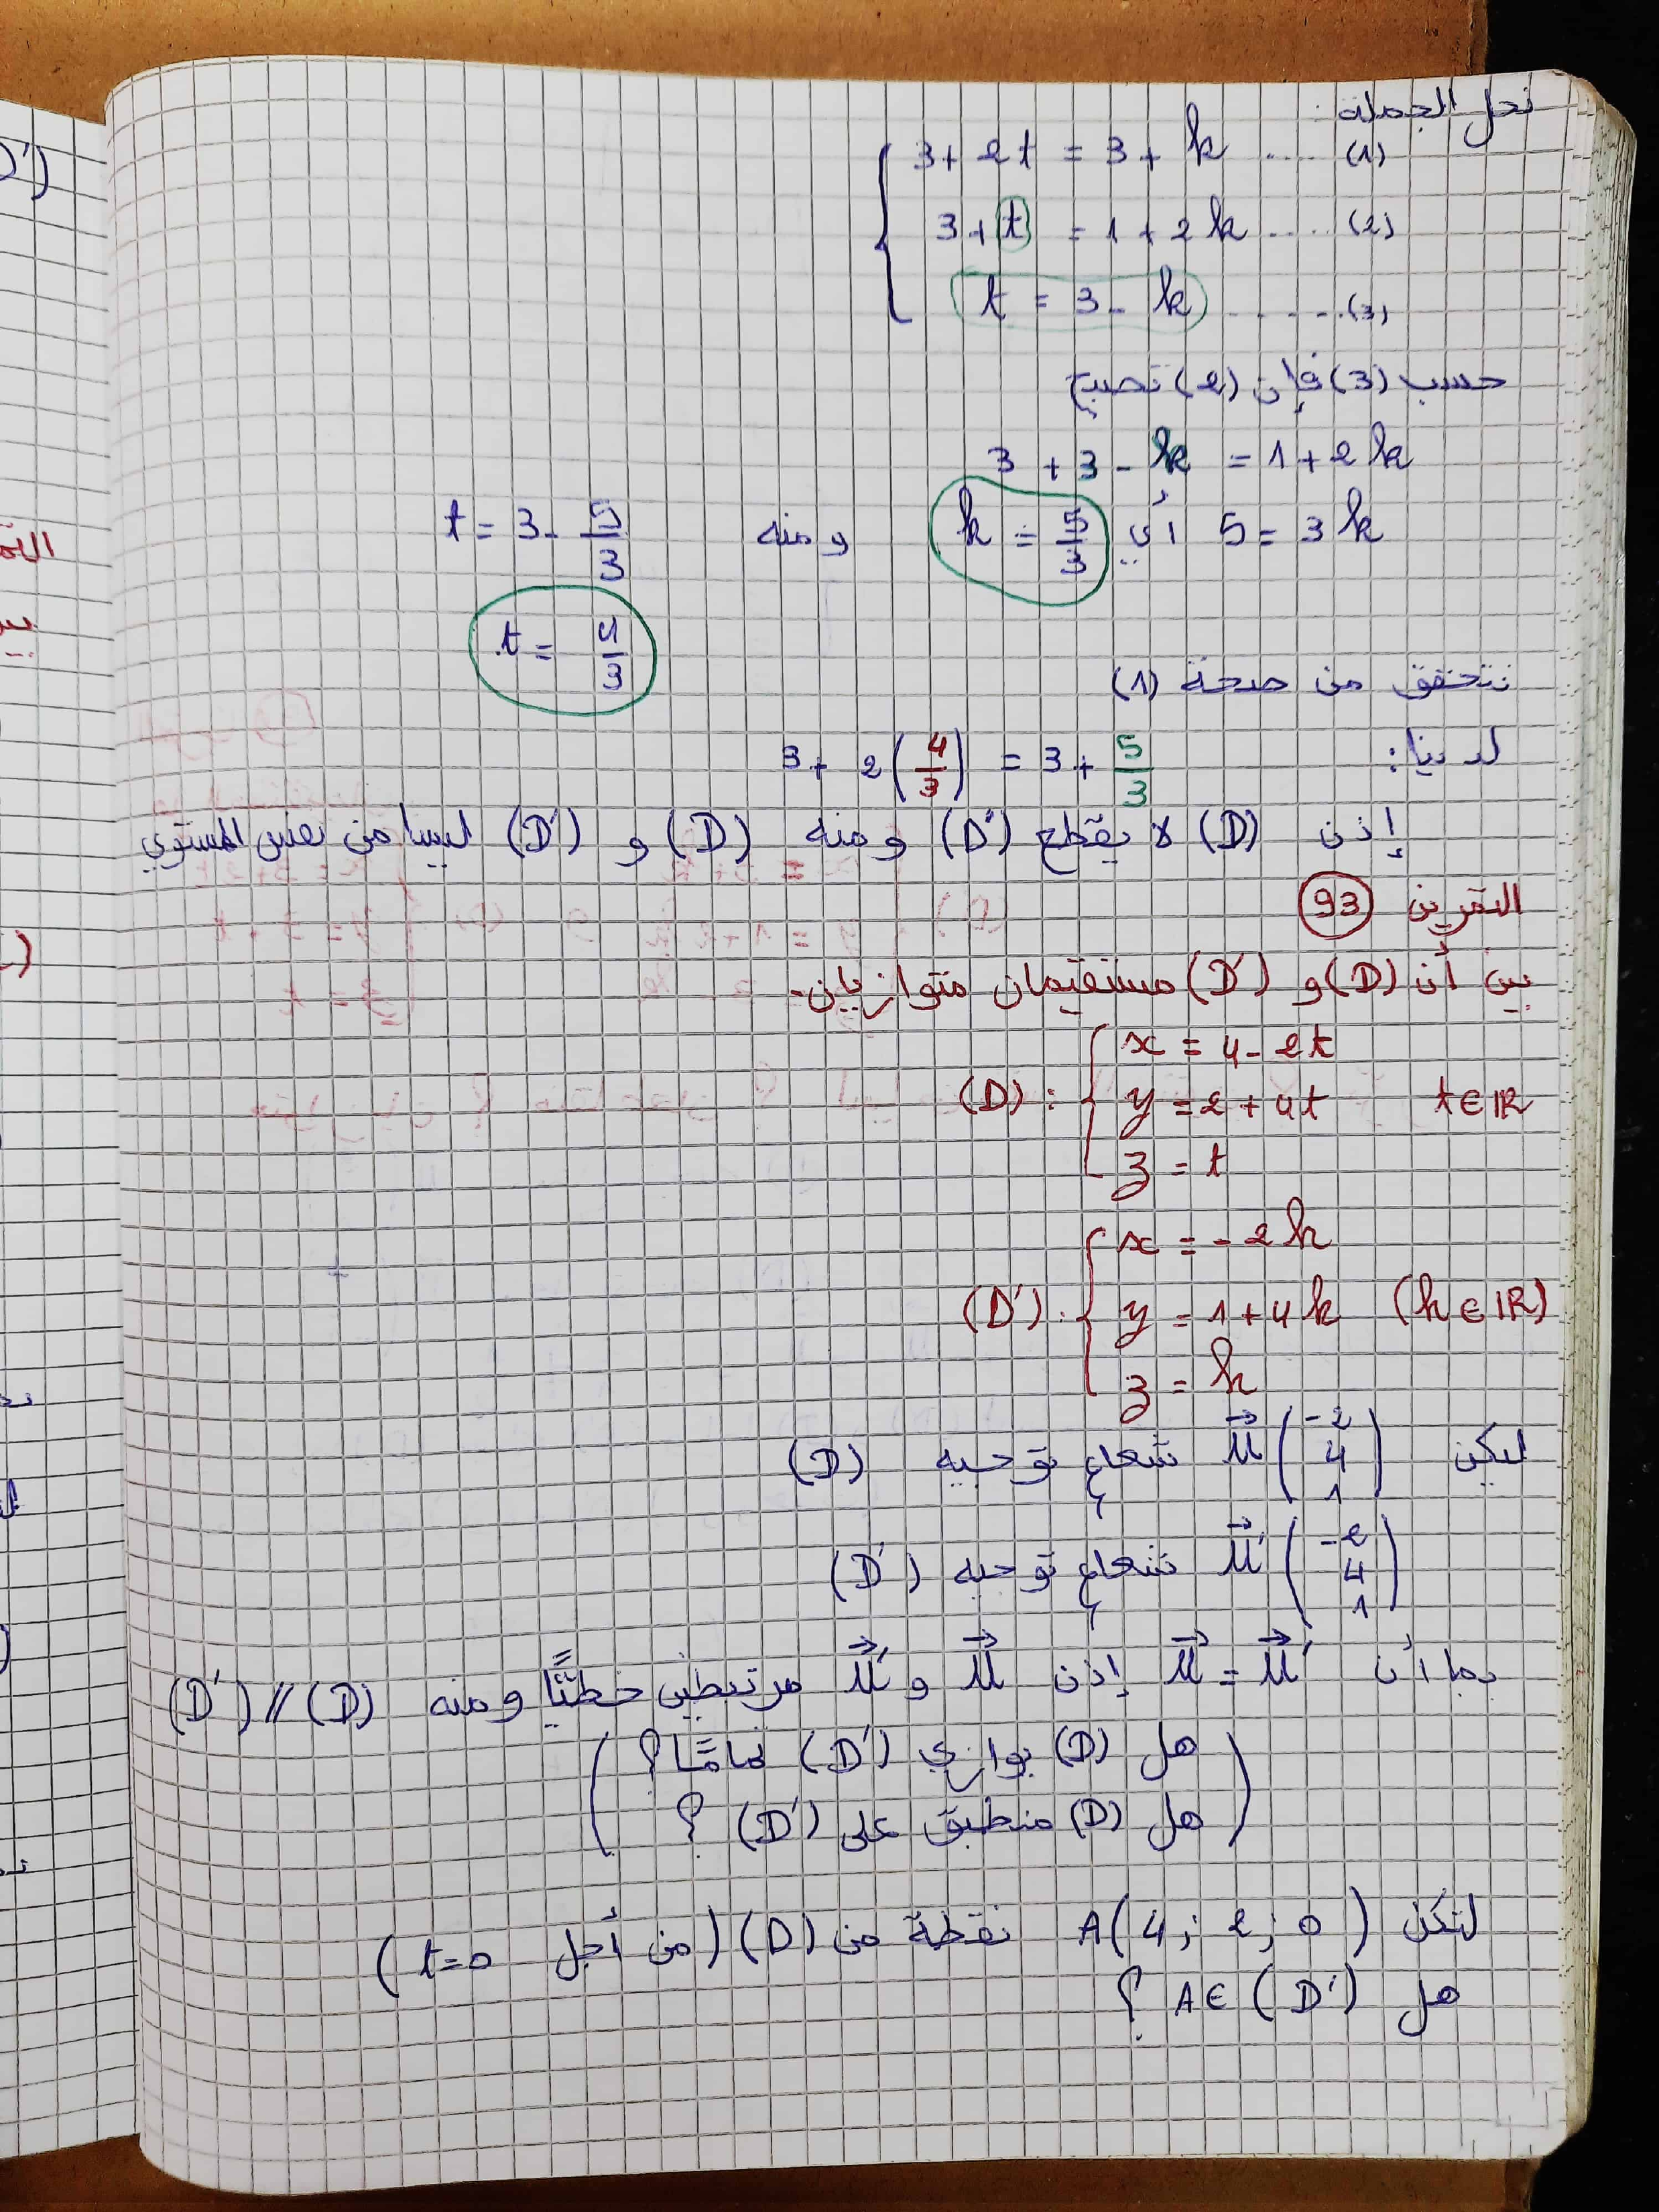 نحل الجملة:
3 + 2t = 3 + k .... (1)
3 + t = 1 + 2k .... (2)
t = 3 - k ....... (3)
حسب (3) فإن (2) تصبح
3 + 3 - k = 1 + 2k
5 = 3k أي k = 5/3 ومنه t = 3 - 5/3
t = 4/3
نتحقق من صحة (1)
لدينا: 3 + 2(4/3) = 3 + 5/3
إذن (D) لا يقطع (D') ومنه (D) و (D') ليسا من نفس المستوي
التمرين 93
بين أن (D) و (D') مستقيمان متوازيان.
(D) : { x = 4 - 2t
y = 2 + 4t t ∈ IR
z = t
(D') : { x = -2k
y = 1 + 4k (k ∈ IR)
z = k
ليكن u⃗ (-2 4 1) شعاع توجيه (D)
u⃗' (-2 4 1) شعاع توجيه (D')
بما أن u⃗ = u⃗' إذن u⃗ و u⃗' مرتبطين خطيًّا ومنه (D) // (D')
(هل (D) يوازي (D') تمامًا؟
هل (D) منطبق على (D') ؟)
لتكن A(4 ; 2 ; 0) نقطة من (D) (من أجل t=0)
هل A ∈ (D') ؟